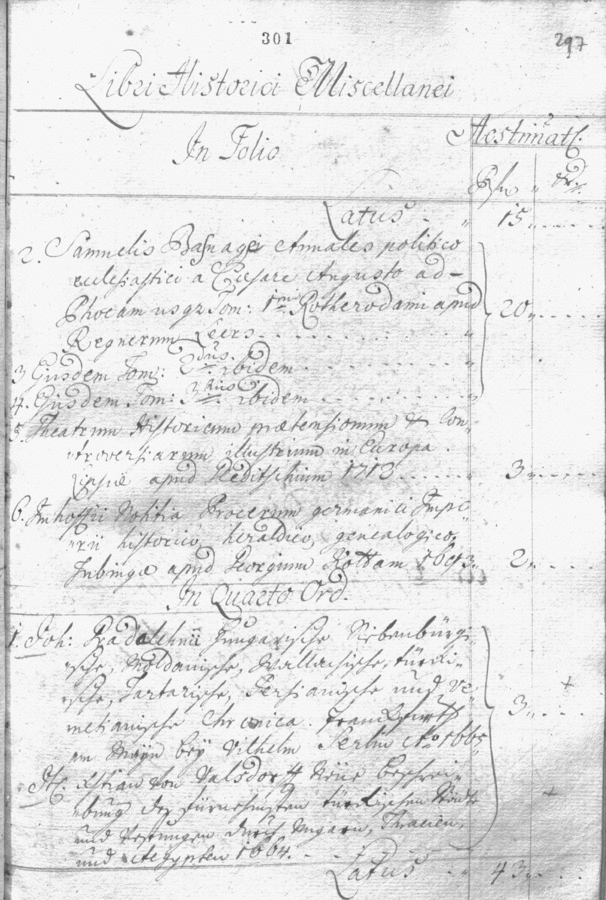 301
297
Libri Historici Miscellanei
In Folio
Aestimat:
Latus - " 15 " - - -
2. Samuelis Basnagii Annales politico
ecclesiastici a Caesare Augusto ad-
Phocam usq; Tom: 1mus Rotherodami apud
Regnerum Leers - - - 20 " - - -
3 Ejusdem Tom: 2dus ibidem - - -
4. Ejusdem Tom: 3tius ibidem - - -
5. Theatrum Historicum praetensionum & Con-
troversiarum illustrium in Europa
Lipsiae apud Reditschium 1713 - - - 3 " - - -
6. Imhoffii Notitia Procerum germanici Impe
rii historico, heraldico, genealogico.
Tubingae apud Georgium 1693 - 2 " - - -
In Quarto Ord.
1. Joh: Hungarische Siebenbürgi-
sche, Moldauische, Wallachische, türki-
sche, Tartarische, Persianische und Ve-
netianische Chronica. Franckfurth
am Mayn bey Wilhelm Serlin Ao 1665 3 " - - -
von Valsdorff Neue Beschrei-
bung der fürnehmsten türckischen Städt
und Vestungen durch Ungarn, Thracien,
und Aegypten 1664. - -
Latus - - 43 - - -